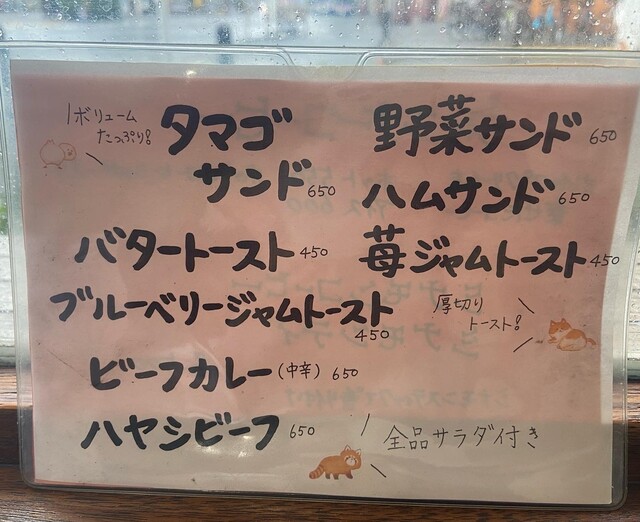 ボリューム
たっぷり!
タマゴ
サンド 650
野菜サンド 650
ハムサンド 650
バタートースト 450
苺ジャムトースト 450
ブルーベリージャムトースト
450
厚切り
トースト!
ビーフカレー (中辛) 650
ハヤシビーフ 650
全品サラダ付き